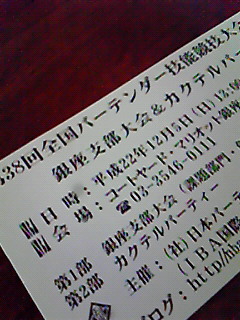 第38回全国バーテンダー技能競技大会
銀座支部大会&カクテルパー
■日 時：平成22年12月5日(日)12:00
■会 場：コートヤード・マリオット銀座
☎03-3546-0111
第1部 銀座支部大会(課題部門・
第2部 カクテルパーティー
主催：(社)日本バーテ
(IBA国際
ブログ：http://nba